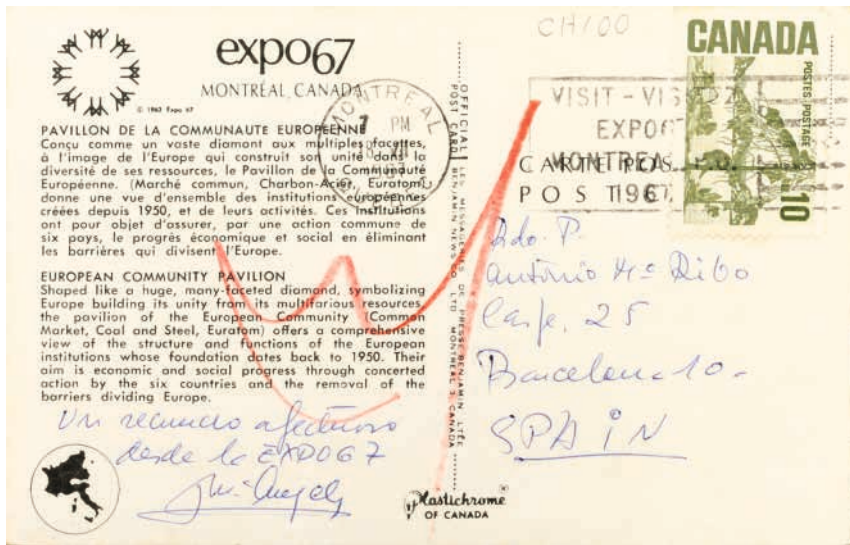 CH100
expo67
MONTRÉAL, CANADA
© 1963 Expo 67
PAVILLON DE LA COMMUNAUTE EUROPEENNE
Conçu comme un vaste diamant aux multiples facettes,
à l'image de l'Europe qui construit son unité dans la
diversité de ses ressources, le Pavillon de la Communauté
Européenne. (Marché commun, Charbon-Acier, Euratom)
donne une vue d'ensemble des institutions européennes
créées depuis 1950, et de leurs activités. Ces institutions
ont pour objet d'assurer, par une action commune de
six pays, le progrès économique et social en éliminant
les barrières qui divisent l'Europe.
EUROPEAN COMMUNITY PAVILION
Shaped like a huge, many-faceted diamond, symbolizing
Europe building its unity from its multifarious resources,
the pavilion of the European Community (Common
Market, Coal and Steel, Euratom) offers a comprehensive
view of the structure and functions of the European
institutions whose foundation dates back to 1950. Their
aim is economic and social progress through concerted
action by the six countries and the removal of the
barriers dividing Europe.
Un recuerdo afectuoso
desde la EXPO67
MONTREAL
PM
OFFICIAL POST CARD
LES MESSAGERIES DE PRESSE BENJAMIN LTÉE
BENJAMIN NEWS CO. LTD. MONTREAL 3, CANADA
Plastichrome
OF CANADA
CANADA
POSTES POSTAGE
10
VISIT - VIS
EXPO
MONTREAL
1967
CARTE POS
POST
Rdo. P.
António Mª Ribo
Casp. 25
Barcelona-10-
SPAIN